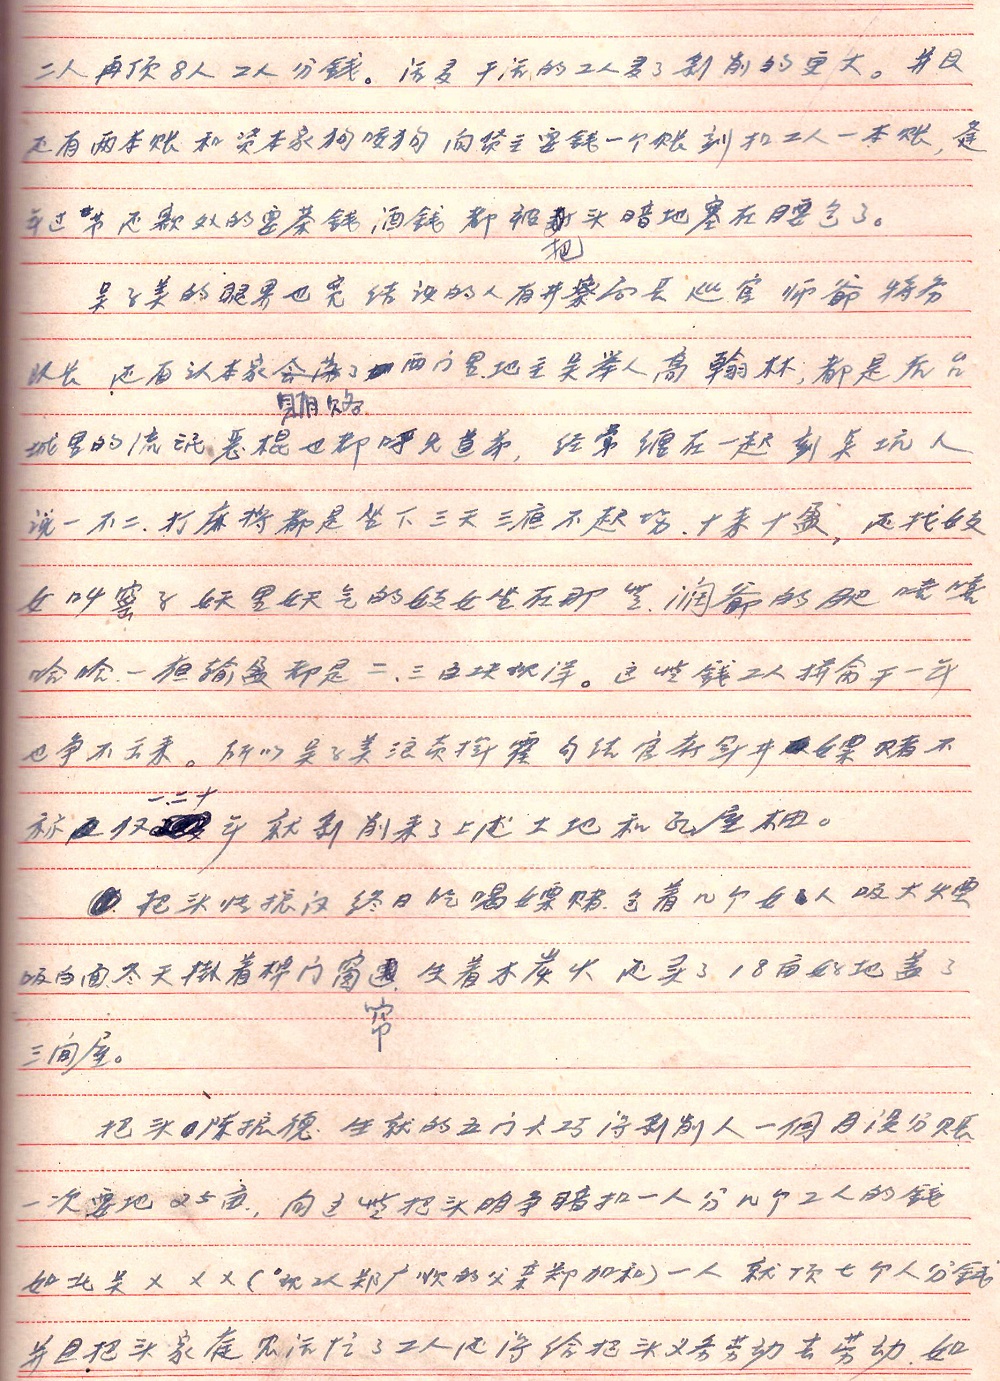 二人再顶8人工人分錢。活是干活的工人受了剥削的更大。并且
还有两本账和资本家狗咬狗向货主要錢一个账到扣工人一本账，逢
年过节还额外的要茶錢酒錢都被把头暗地塞在腰包了。
吴子美的眼界也宽结识的人有井察局长巡官师爺特务
队长还有认本家贿赂了西门里地主吴举人高翰林，都是后台
城里的流氓恶棍也都呼兄道弟，经常缠在一起剥吴坑人
说一不二.打麻将都是坐下三天三夜不起场.十来十盈，还找妓
女叫窑子妖里妖气的妓女坐在那些阔爺的腿嘻嘻
哈哈.一组输盈都是二.三百块现洋。这些錢工人拼命干一年
也争不云来。所以吴子美浪费挥霍勾结官府宪井嫖赌不
称仅一二十年就剥削来了上述土地和瓦屋楼。
把头 振汉终日吃喝嫖赌.包着几个女人吸大煙
吸白面.冬天掛着棉门窗帘生着木炭火还买了18亩好地盖了
三间屋。
把头陈振德.生就的五门大巧净剥削人一個月没分账
一次要地25亩，向这些把头明争暗扣一人分几个工人的錢
如北吴×××（现工人郑广顺的父亲郑加和）一人就顶七个人分錢
并且把头家庭农活忙了工人还得给把头义务劳动去劳动.如